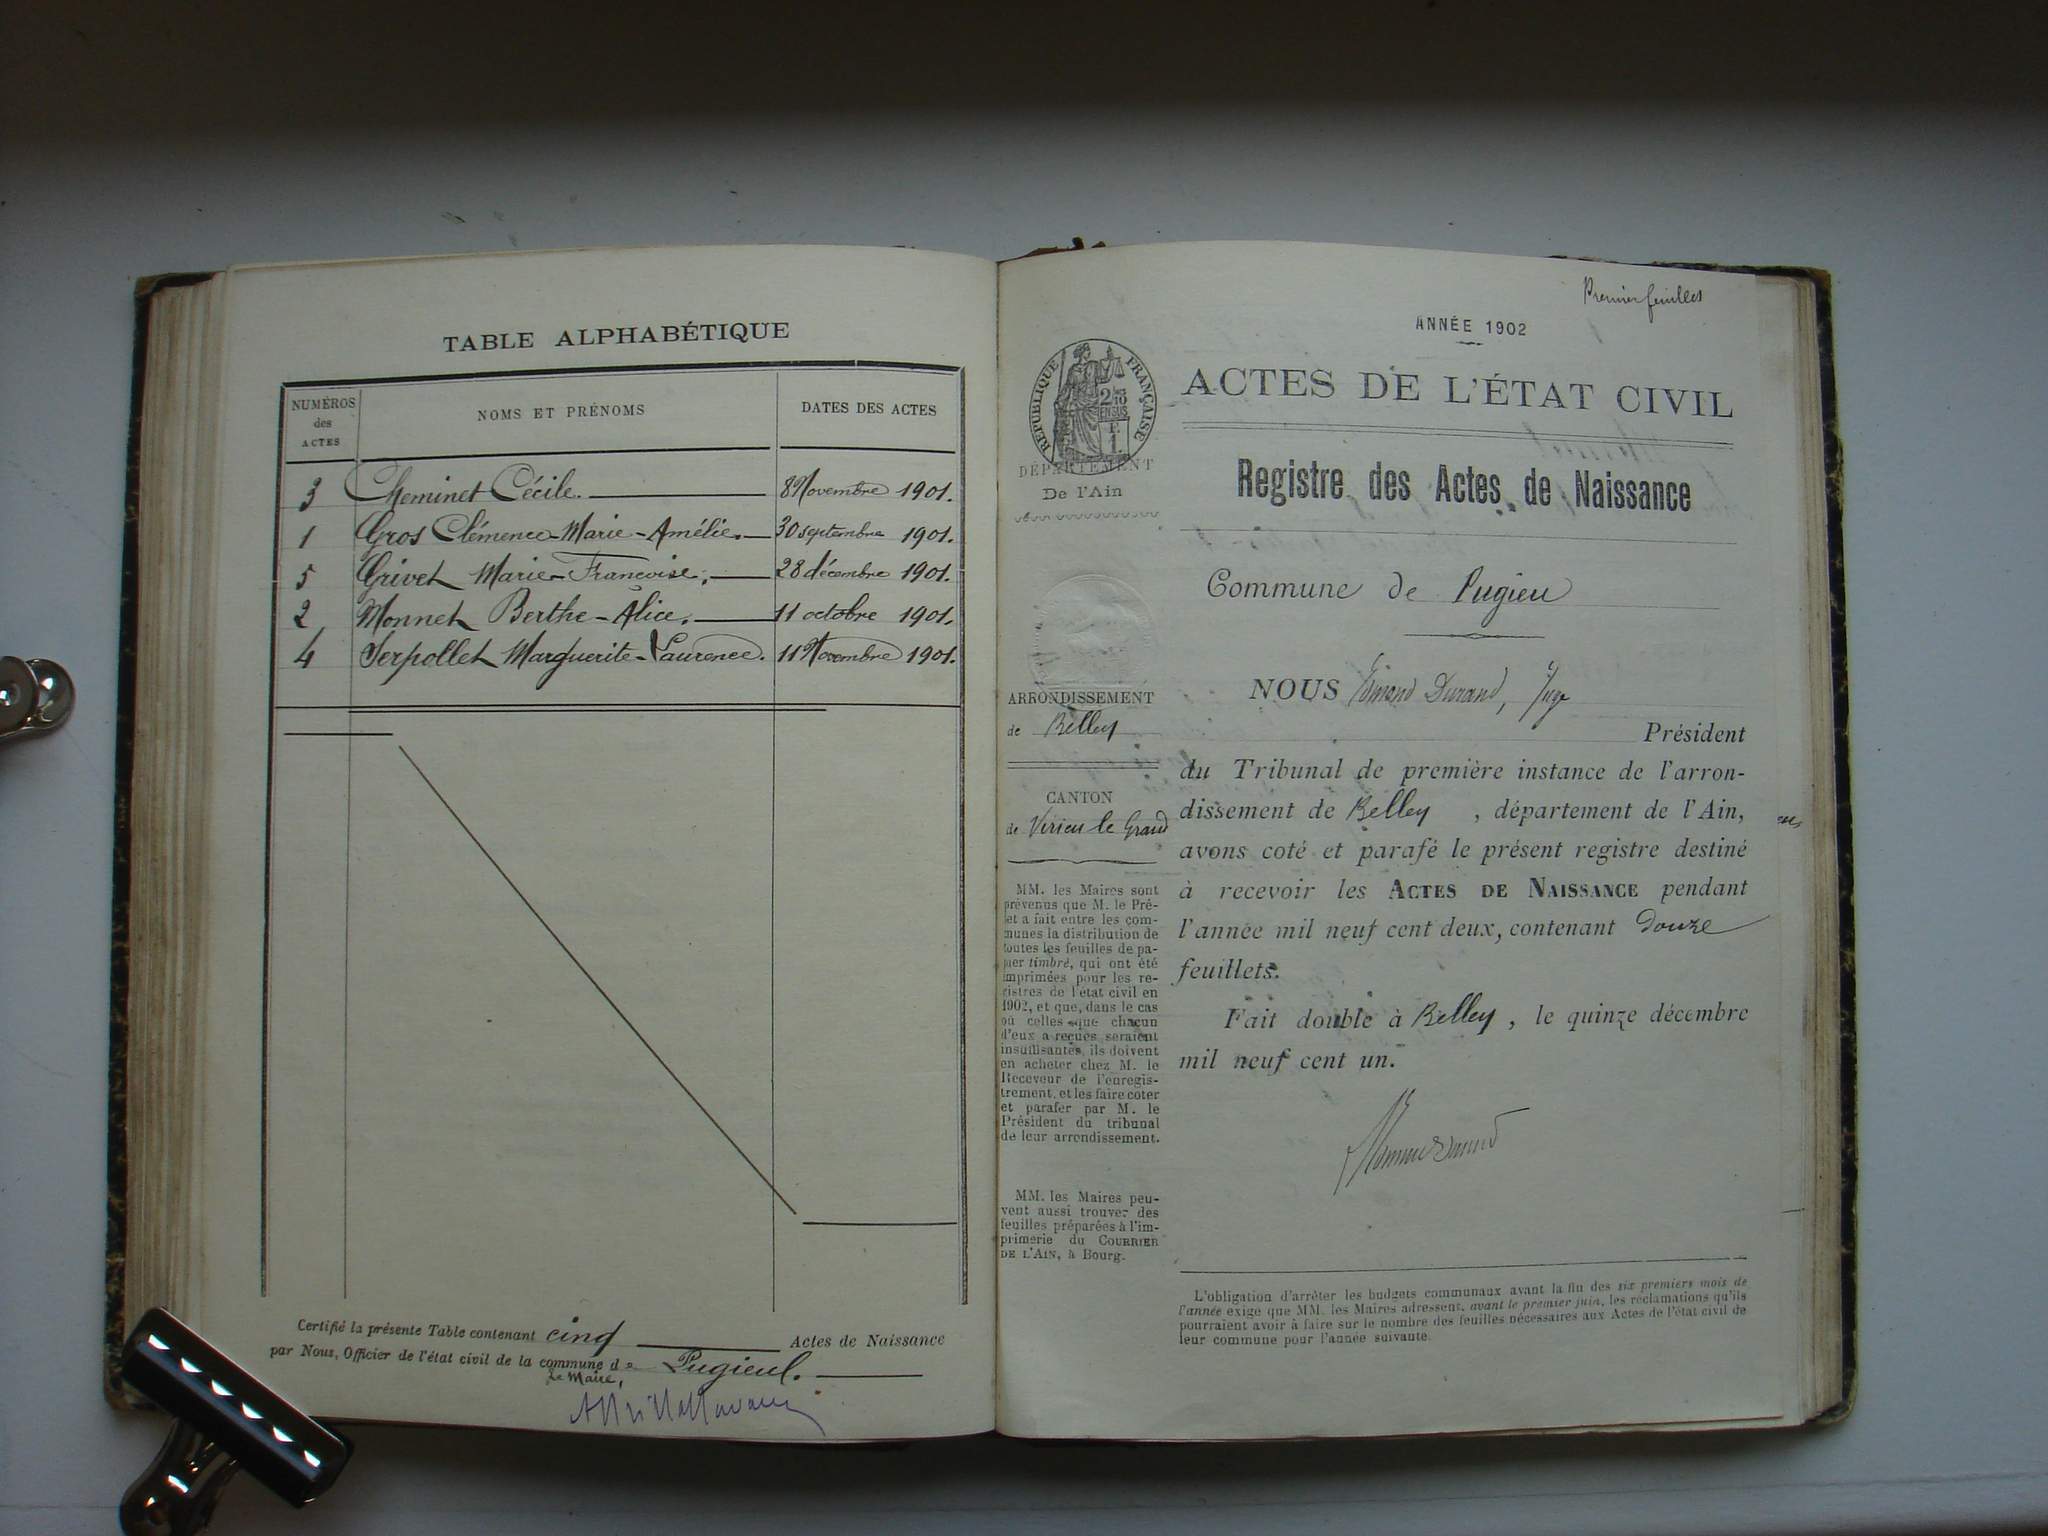 TABLE ALPHABÉTIQUE
NUMÉROS des ACTES
NOMS ET PRÉNOMS
DATES DES ACTES
3 Cheminet Cécile. 8 Novembre 1901.
1 Gros Clémence-Marie-Amélie. 30 septembre 1901.
5 Grivet Marie-Francoise. 28 décembre 1901.
2 Monnet Berthe-Alice. 11 octobre 1901.
4 Serpollet Marguerite-Laurence. 11 Novembre 1901.
Certifié la présente Table contenant cinq Actes de Naissance
par Nous, Officier de l'état civil de la commune de Pugieu.
Le Maire,
Premier feuillet
ANNÉE 1902
ACTES DE L'ÉTAT CIVIL
Registre des Actes de Naissance
Commune de Pugieu
NOUS Edmond Durand, Juge
Président
du Tribunal de première instance de l'arron-
dissement de Belley, département de l'Ain,
avons coté et parafé le présent registre destiné
à recevoir les ACTES DE NAISSANCE pendant
l'année mil neuf cent deux, contenant Douze
feuillets.
Fait double à Belley, le quinze décembre
mil neuf cent un.
L'obligation d'arrêter les budgets communaux avant la fin des six premiers mois de
l'année exige que MM. les Maires adressent, avant le premier juin, les réclamations qu'ils
pourraient avoir à faire sur le nombre des feuilles nécessaires aux Actes de l'état civil de
leur commune pour l'année suivante.
RÉPUBLIQUE FRANÇAISE
2/10
EN SUS
F.
1.
DÉPARTEMENT
De l'Ain
ARRONDISSEMENT
de Belley
CANTON
de Virieu le Grand
MM. les Maires sont
prévenus que M. le Pré-
fet a fait entre les com-
munes la distribution de
toutes les feuilles de pa-
pier timbré, qui ont été
imprimées pour les re-
gistres de l'état civil en
1902, et que, dans le cas
où celles que chacun
d'eux a reçues seraient
insuffisantes, ils doivent
en acheter chez M. le
Receveur de l'enregis-
trement, et les faire coter
et parafer par M. le
Président du tribunal
de leur arrondissement.
MM. les Maires peu-
vent aussi trouver des
feuilles préparées à l'im-
primerie du COURRIER
DE L'AIN, à Bourg.